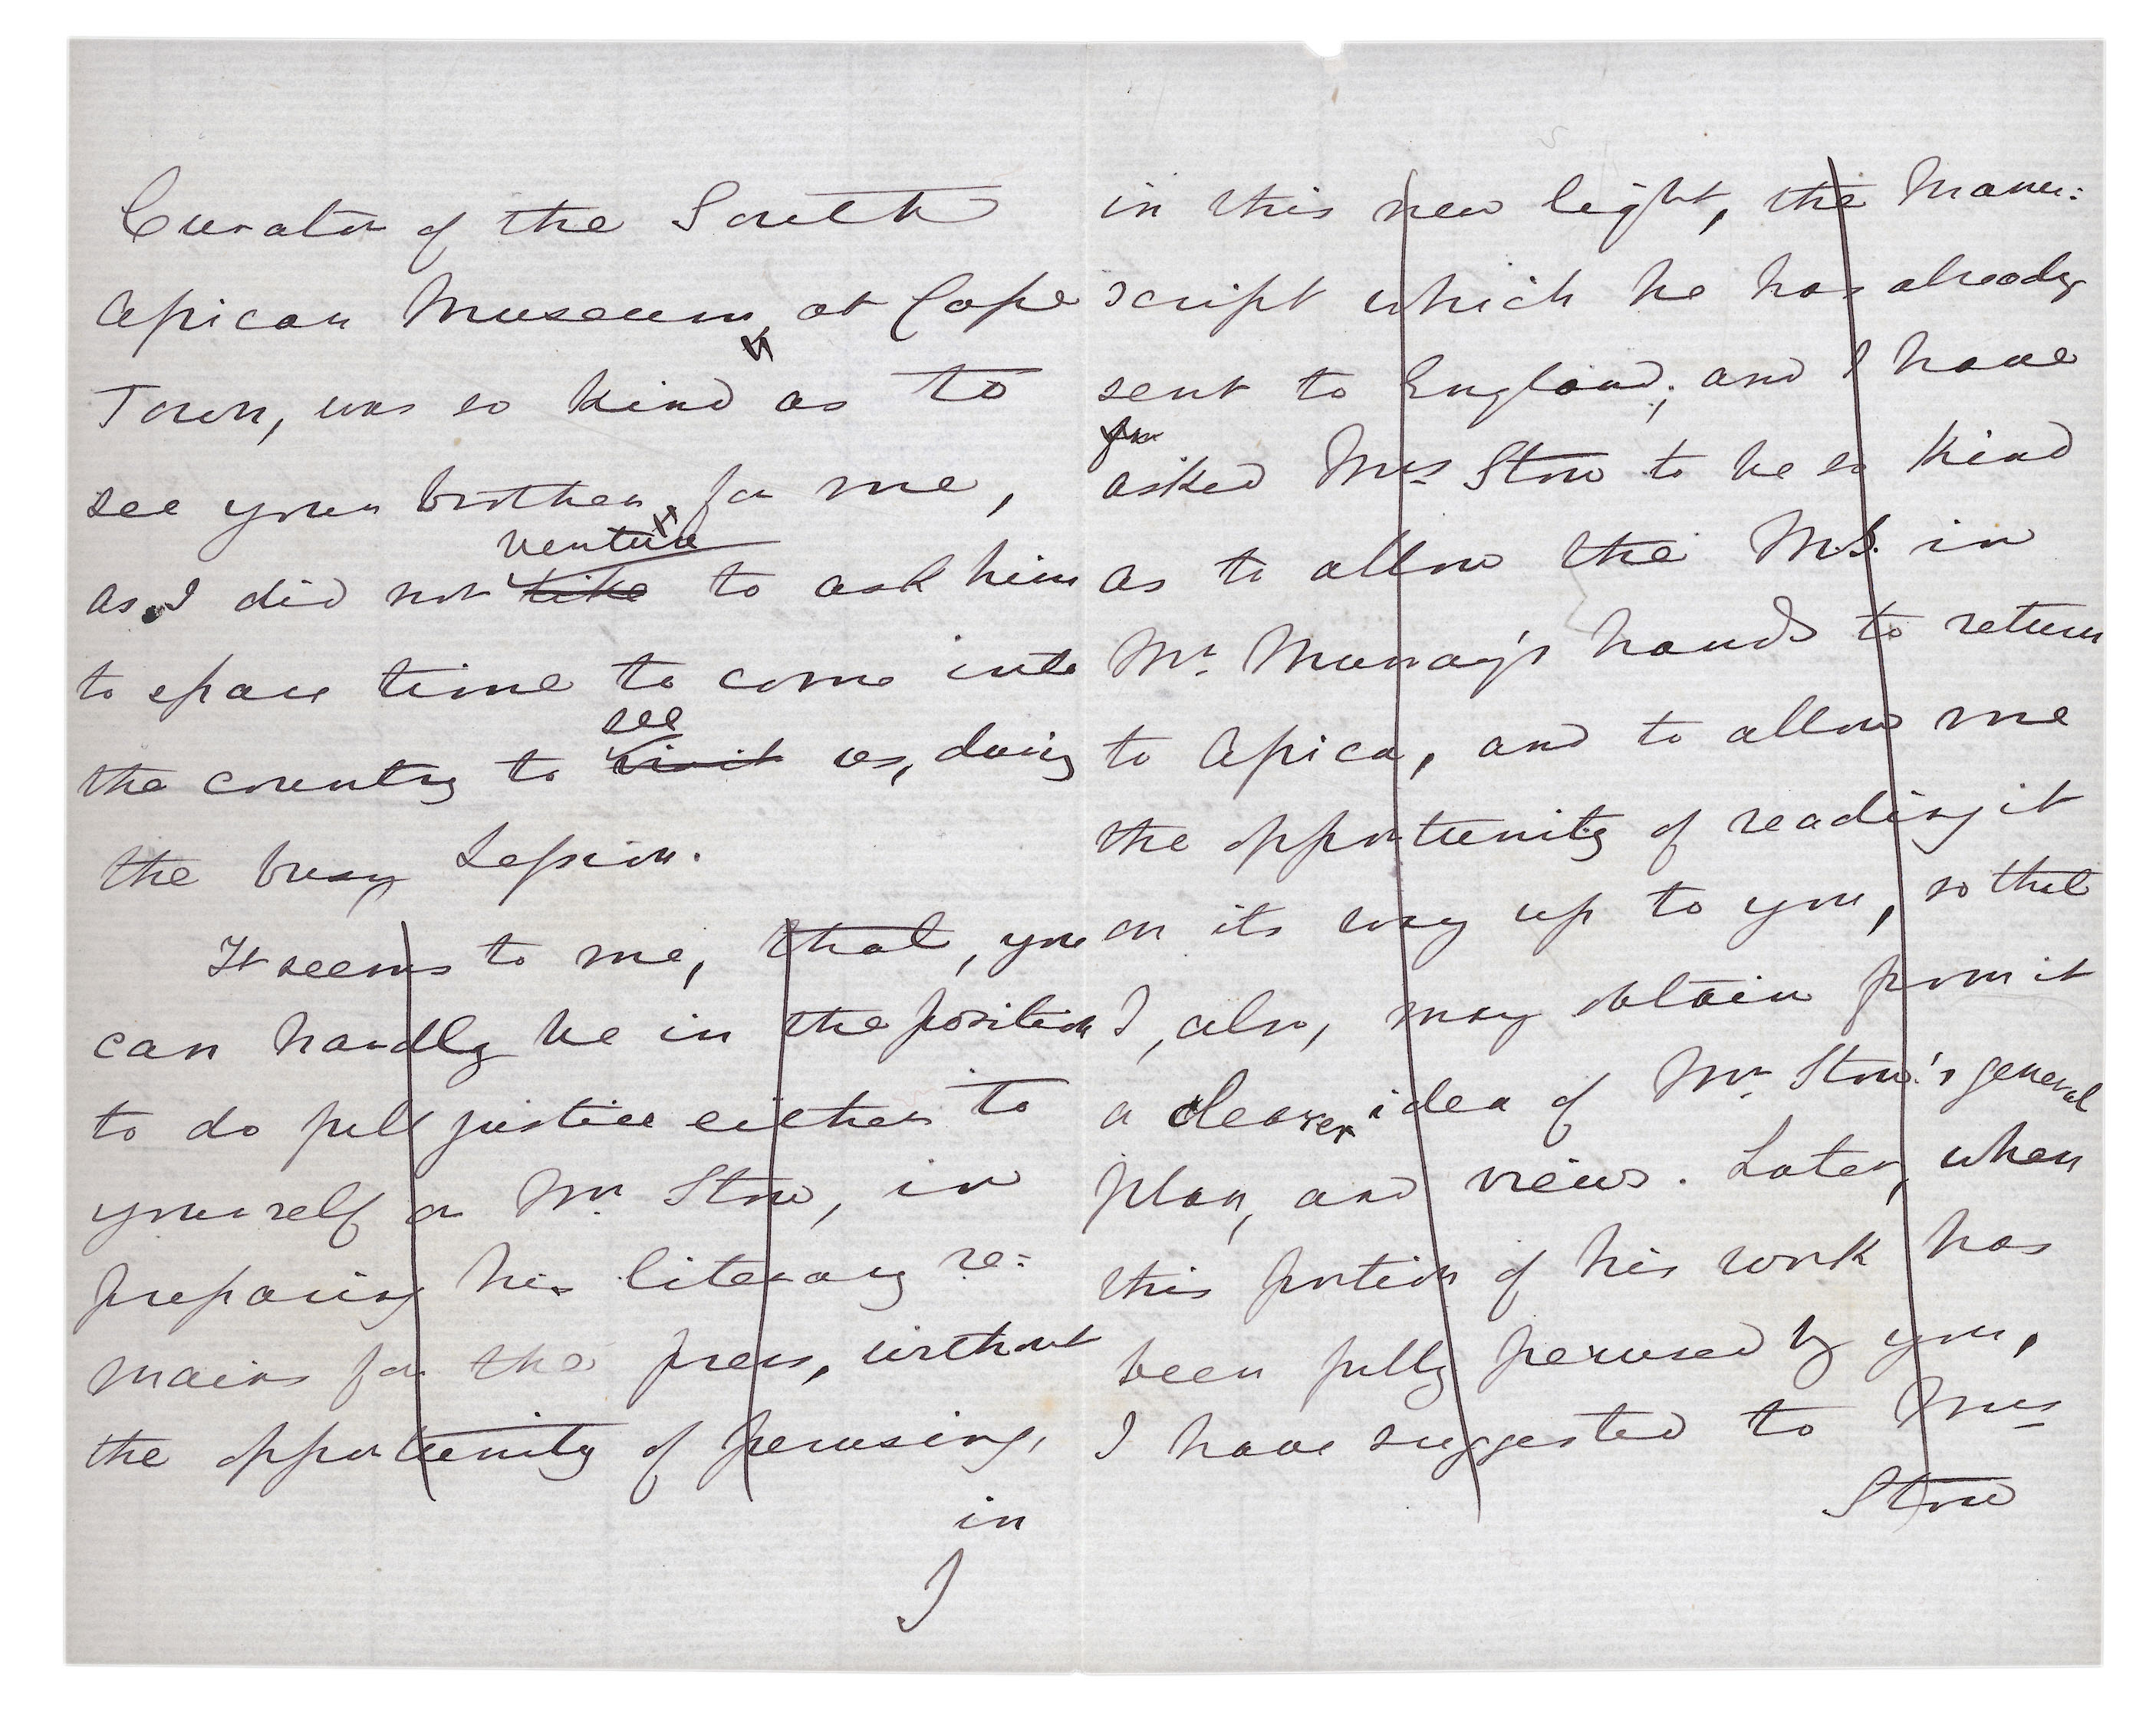 Curator of the South
African Museum, at Cape
Town, was so kind as to
see your brother for me,
venture
as I did not like to ask him
to spare time to come into
see
the country to visit us, during
the busy Session.
It seems to me, that, you
can hardly be in the position
to do full justice either to
yourself or Mr. Stow, in
preparing his literary re:
mains for the press, without
the opportunity of perusing,
in
I
in this new light, the Manu:
script which he has already
sent to England; and I have
asked Mrs Stow to be so kind
as to allow the M.S. in
Mr. Murray's hands to return
to Africa, and to allow me
the opportunity of reading it
on its way up to you, so that
I, also, may obtain from it
a clearer idea of Mr. Stow's general
plan, and views. Later, when
this portion of his work has
been fully perused by you,
I have suggested to Mrs
Stow